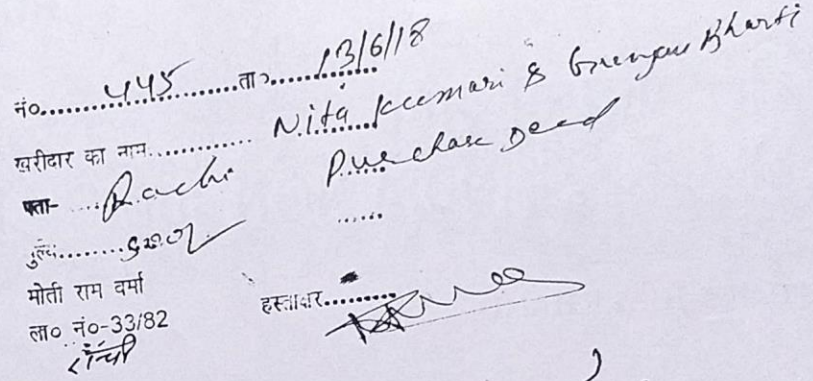 नं०.......445.......ता०.......13/6/18
खरीदार का नाम............Nita Kumari & Gunjan Bharti
पता- ....Rachi Purchase Deed
मुल्य........
मोती राम वर्मा हस्ताक्षर.........
ला० नं०-33/82
राँची